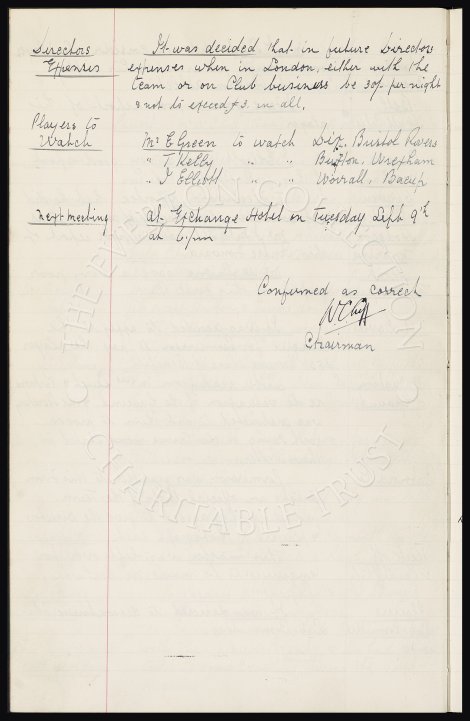 Directors Expenses
It was decided that in future Directors
expenses when in London, either with the
team or on Club business be 30/- per night
& not to exceed £3 in all.
Players to Watch
Mr E Green to watch Dix, Bristol Rovers
" T. Kelly " " Burton, Wrexham
" J Elliott " " Worrall, Bacup
next meeting
at Exchange Hotel on Tuesday Sept 9th
at 6 pm
Confirmed as correct
W C Cuff
Chairman
THE EVERTON COLLECTION
CHARITABLE TRUST